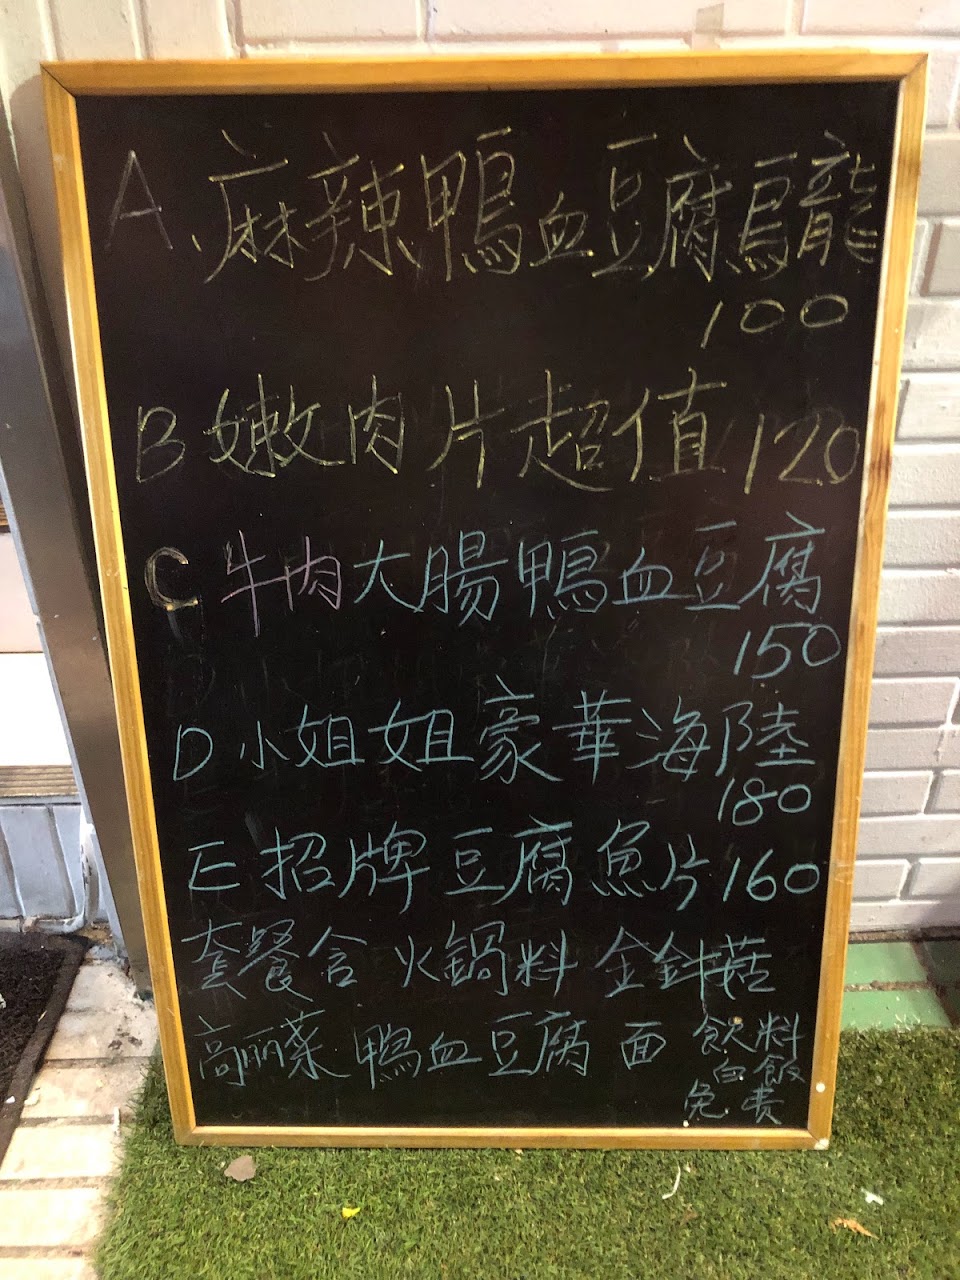 A、麻辣鴨血豆腐烏龍
100
B 嫩肉片超值 120
C 牛肉大腸鴨血豆腐
150
D 小姐姐豪華海陸
180
E 招牌豆腐魚片 160
套餐含 火鍋料 金針菇
高丽菜 鴨血豆腐 面 飲料
白飯
免費